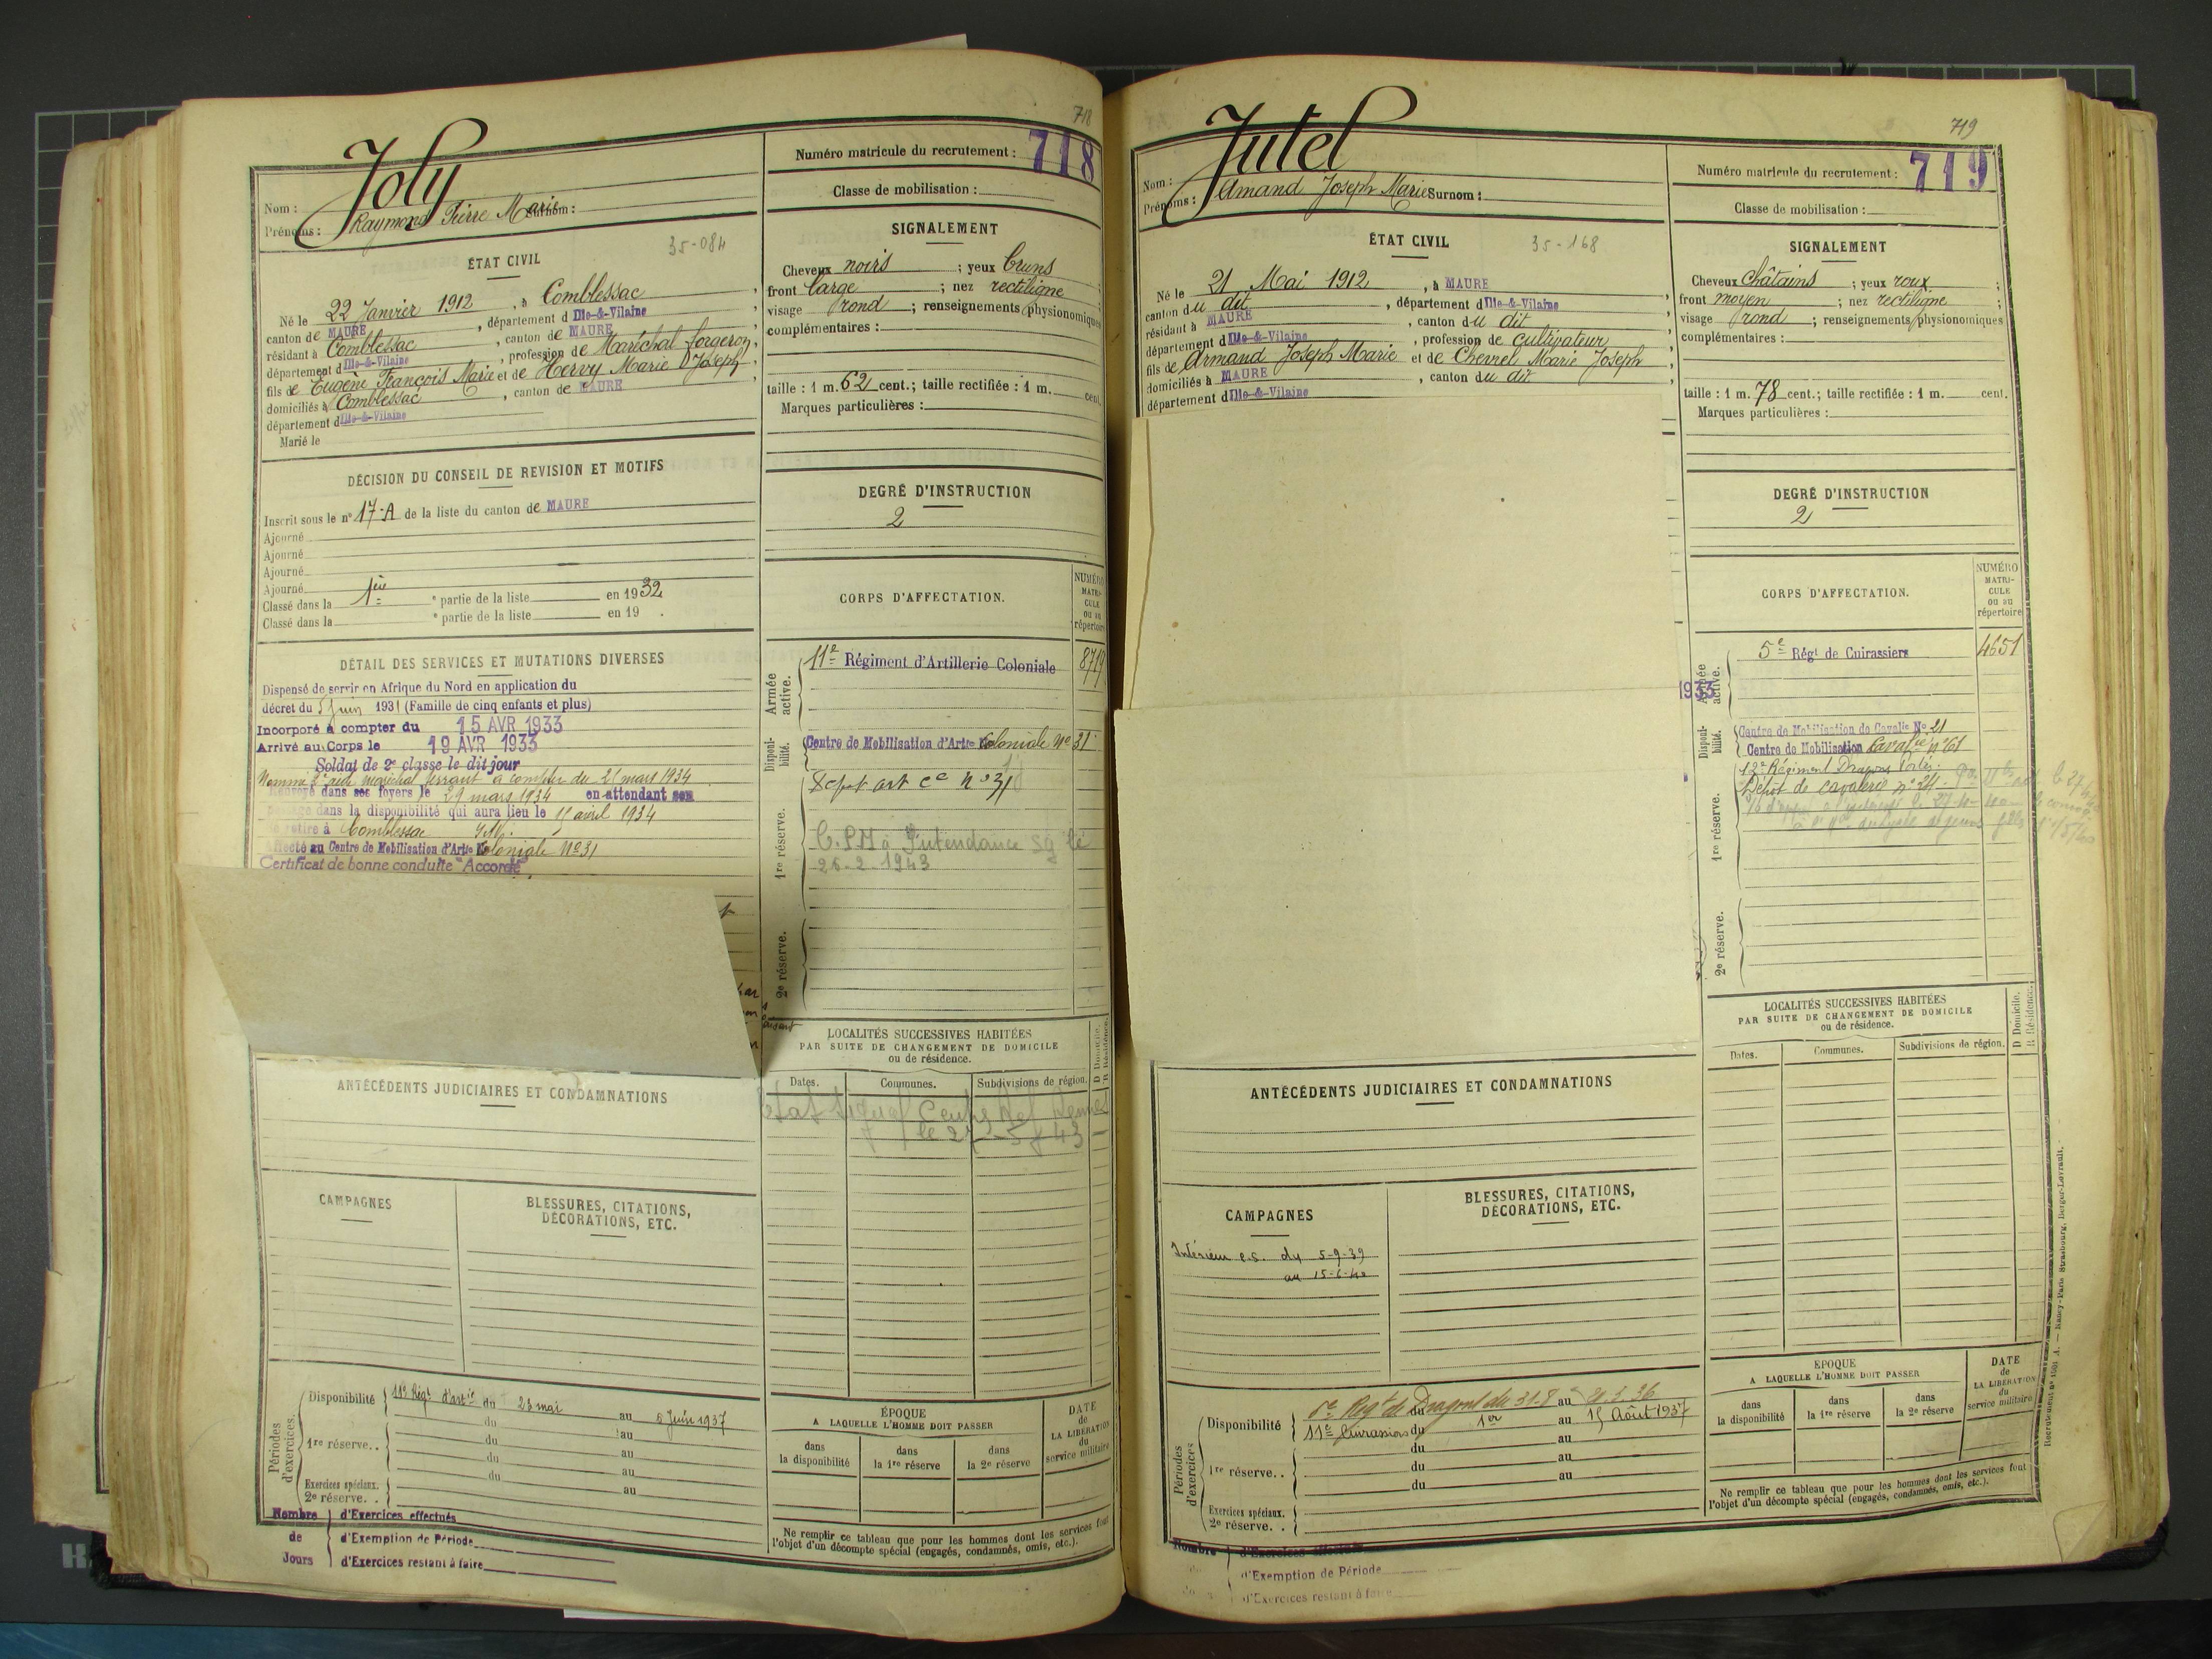 718
Joly
Nom :
Prénoms : Raymond Pierre Marie Surnom :
35-084
ÉTAT CIVIL
Né le 22 Janvier 1912, à Comblessac,
canton de MAURE, département d Ille-&-Vilaine
résidant à Comblessac, canton de MAURE
département d Ille-&-Vilaine, profession de Maréchal forgeron,
fils de Eugène François Marie et de Hervy Marie Joseph
domiciliés à Comblessac, canton de MAURE
département d Ille-&-Vilaine
Marié le
DÉCISION DU CONSEIL DE REVISION ET MOTIFS
Inscrit sous le n° 17-A de la liste du canton de MAURE
Ajourné
Ajourné
Ajourné
Ajourné
Classé dans la 1ère partie de la liste en 1932
Classé dans la e partie de la liste en 19 .
DÉTAIL DES SERVICES ET MUTATIONS DIVERSES
Dispensé de servir en Afrique du Nord en application du
décret du 5 Juin 1931 (Famille de cinq enfants et plus)
Incorporé à compter du 15 AVR 1933
Arrivé au Corps le 19 AVR 1933
Soldat de 2e classe le dit jour
Nommé 2e aide maréchal ferrant à compter du 21 mars 1934
Renvoyé dans ses foyers le 29 mars 1934 en attendant son
passage dans la disponibilité qui aura lieu le 15 avril 1934
se retire à Comblessac
Affecté au Centre de Mobilisation d'Artie Coloniale N° 31
Certificat de bonne conduite "Accordé"
ANTÉCÉDENTS JUDICIAIRES ET CONDAMNATIONS
CAMPAGNES
BLESSURES, CITATIONS,
DÉCORATIONS, ETC.
Périodes d'exercices.
Disponibilité 11e Régt d'artie du 23 mai au 5 Juin 1937
du au
1re réserve. . du au
du au
du au
Exercices spéciaux.
2e réserve. . au
Nombre de Jours
d'Exercices effectués
d'Exemption de Période
d'Exercices restant à faire
Numéro matricule du recrutement : 718
Classe de mobilisation :
SIGNALEMENT
Cheveux noirs ; yeux bruns
front large ; nez rectiligne
visage rond ; renseignements physionomiques
complémentaires :
taille : 1 m. 62 cent.; taille rectifiée : 1 m. cent.
Marques particulières :
DEGRÉ D'INSTRUCTION
2
CORPS D'AFFECTATION.
NUMÉRO MATRICULE ou au répertoire
Armée active.
11e Régiment d'Artillerie Coloniale 8719
Disponibilité.
Centre de Mobilisation d'Artie Coloniale N° 31
Dépot art ce n° 31
1re réserve.
C.P.M à Intendance Sg le
26-2-1943
2e réserve.
LOCALITÉS SUCCESSIVES HABITÉES
PAR SUITE DE CHANGEMENT DE DOMICILE
ou de résidence.
Dates. Communes. Subdivisions de région. D Domicile. R Résidence.
le 27-5-43
ÉPOQUE
A LAQUELLE L'HOMME DOIT PASSER
dans la disponibilité
dans la 1re réserve
dans la 2e réserve
DATE de LA LIBÉRATION du service militaire
Ne remplir ce tableau que pour les hommes dont les services font
l'objet d'un décompte spécial (engagés, condamnés, omis, etc.).
719
Jutel
Nom :
Prénoms : Armand Joseph Marie Surnom :
35-168
ÉTAT CIVIL
Né le 21 Mai 1912, à MAURE
canton du dit, département d Ille-&-Vilaine
résidant à MAURE, canton du dit
département d Ille-&-Vilaine, profession de cultivateur
fils de Armand Joseph Marie et de Chevrel Marie Joseph
domiciliés à MAURE, canton du dit
département d Ille-&-Vilaine
1933
ANTÉCÉDENTS JUDICIAIRES ET CONDAMNATIONS
CAMPAGNES
Intérieur c.s. du 5-9-39
au 15-6-40
BLESSURES, CITATIONS,
DÉCORATIONS, ETC.
Périodes d'exercices.
Disponibilité Reg de Dragons du 31-8 au
11e Cuirassiers du 1er au 15 Août 1937
du au
1re réserve. . du au
du au
Exercices spéciaux.
2e réserve. .
Nombre d'Exercices effectués
d'Exemption de Période
d'Exercices restant à faire
Numéro matricule du recrutement : 719
Classe de mobilisation :
SIGNALEMENT
Cheveux châtains ; yeux roux ;
front moyen ; nez rectiligne ;
visage rond ; renseignements physionomiques
complémentaires :
taille : 1 m. 78 cent.; taille rectifiée : 1 m. cent.
Marques particulières :
DEGRÉ D'INSTRUCTION
2
CORPS D'AFFECTATION.
NUMÉRO MATRICULE ou au répertoire
Armée active.
5e Régt de Cuirassiers 4651
Disponibilité.
Centre de Mobilisation de Cavalie N° 21
Centre de Mobilisation Cavalie n° 61
1re réserve.
12e Régiment Dragons Portés.
Dépot de cavalerie n° 24
2e réserve.
LOCALITÉS SUCCESSIVES HABITÉES
PAR SUITE DE CHANGEMENT DE DOMICILE
ou de résidence.
Dates. Communes. Subdivisions de région. D Domicile. R Résidence.
ÉPOQUE
A LAQUELLE L'HOMME DOIT PASSER
dans la disponibilité
dans la 1re réserve
dans la 2e réserve
DATE de LA LIBÉRATION du service militaire
Ne remplir ce tableau que pour les hommes dont les services font
l'objet d'un décompte spécial (engagés, condamnés, omis, etc.).
Nancy-Paris Strasbourg, Berger-Levrault.